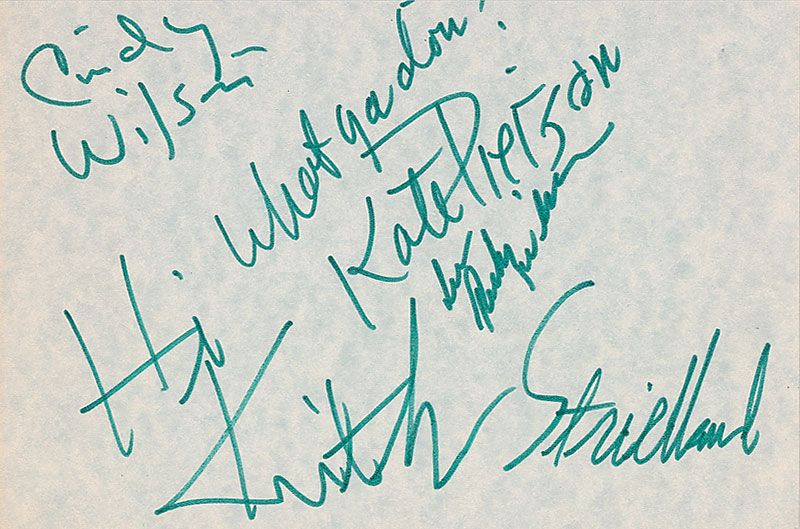 Cindy
Wilson
Hi
What ya doin?
Kate Pierson
Keith Strickland